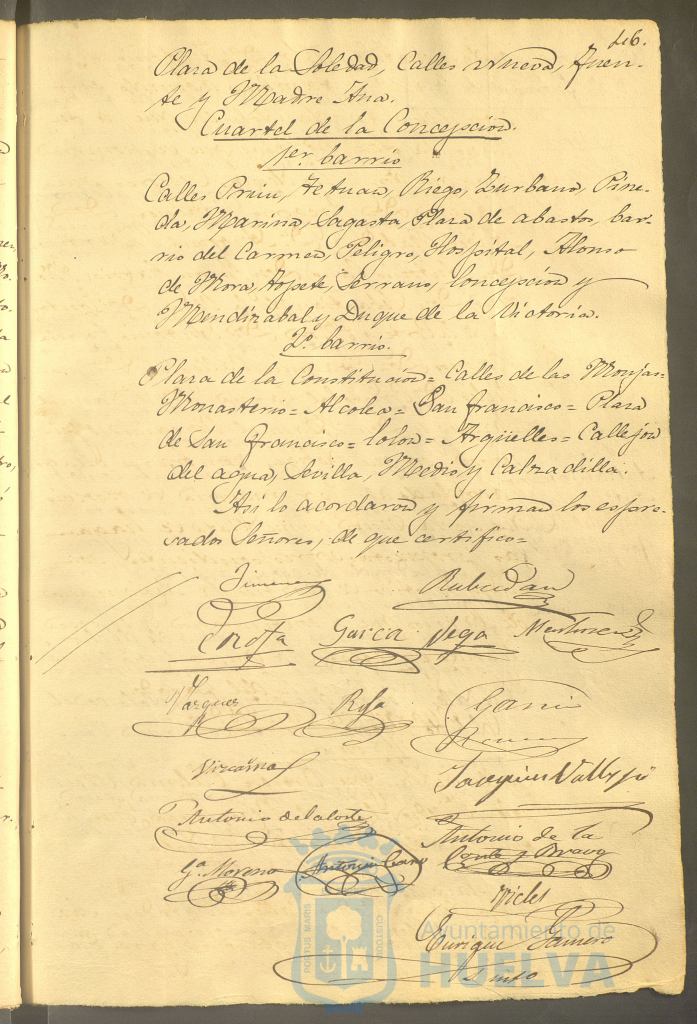 46.
Plaza de la Soledad, Calles Nueva, Fuen-
te y Madre Ana.
Cuartel de la Concepcion.
1er. barrio
Calles Prim, Tetuan, Riego, Zurbano, Pine-
da, Marina, Sagasta, Plaza de abastos, bar-
rio del Carmen, Peligro, Hospital, Alonso
de Mora, Topete, Serrano, Concepcion y
Mendizabal y Duque de la Victoria.
2º barrio.
Plaza de la Constitucion = Calles de las Monjas =
Monasterio = Alcolea = San Francisco = Plaza
de San Francisco = Colon = Argüelles = Callejon
del agua, Sevilla, Medio y Calzadilla.
Asi lo acordaron y firman los espre-
sados Señores, de que certifico =
Jimenez
Garcia Vega Martinez
Vazquez Rofa
Vizcaino
Joaquin Vallejo
Antonio de la Corte
Antonio de la
Corte y Bravo
Gª Moreno Antonio Cano
Enrique
PORTUS MARIS CUSTODIA
Ayuntamiento de
HUELVA